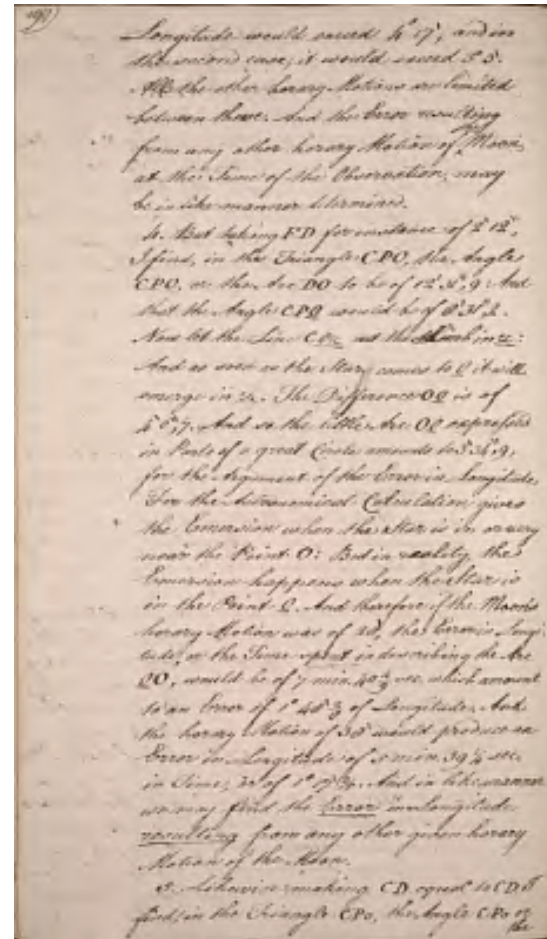 Longitude would exceed 4° 17', and in
the second case, it would exceed 3° 5'.
All the other horary Motions are limited
between those. And the Error resulting
from any other horary Motion of the Moon,
at the Time of the Observation, may
be in like manner determined.
4. But taking FD for instance of 2° 12',
I find, in the Triangle CPO, the Angle
CPO, or the Arc DO to be of 12° 31', 9: And
that the Angle CPQ would be of 8° 31', 2.
Now let the Line CP cut the Limb in
And as soon as the Star comes to Q it will
emerge in The Difference OQ is of
4° 0', 7. And so the little Arc OQ expressed
in Parts of a great Circle amounts to 3', 9,
for the Argument of the Error in Longitude.
For the Astronomical Calculation gives
the Emersion when the Star is in or very
near the Point O: But in reality, the
Emersion happens when the Star is
in the Point Q. And therefore if the Moon's
horary Motion was of 28', the Error in Longi-
tude, or the Time spent in describing the Arc
QO, would be of 7 min. 40 sec. which amount
to an Error of 1° of Longitude. And
the horary Motion of 38' would produce an
Error in Longitude of 5 min. 39 sec.
in Time, or of 1° And in like manner
we may find the Error in Longitude
resulting from any other given horary
Motion of the Moon.
5. Likewise making CD equal to CD I
find, in the Triangle CPo, the Angle CPo or
the